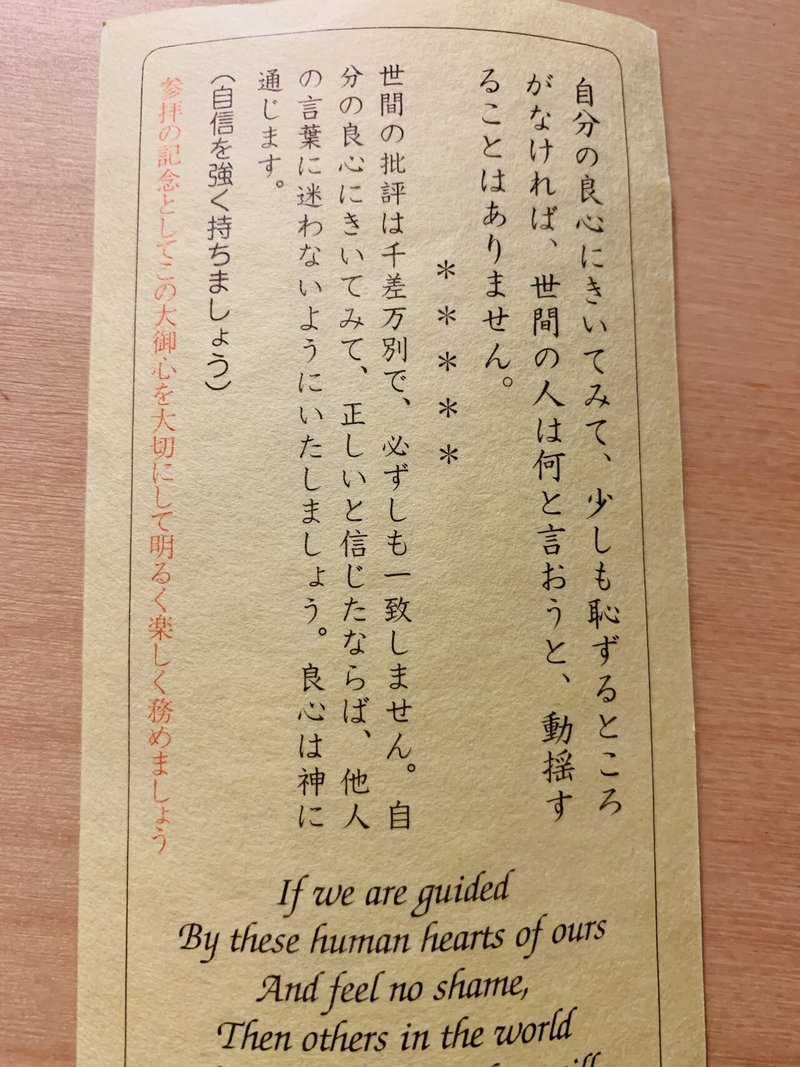 自分の良心にきいてみて、少しも恥ずるところ
がなければ、世間の人は何と言おうと、動揺す
ることはありません。
＊＊＊＊＊
世間の批評は千差万別で、必ずしも一致しません。自
分の良心にきいてみて、正しいと信じたならば、他人
の言葉に迷わないようにいたしましょう。良心は神に
通じます。
（自信を強く持ちましょう）
参拝の記念としてこの大御心を大切にして明るく楽しく務めましょう
If we are guided
By these human hearts of ours
And feel no shame,
Then others in the world